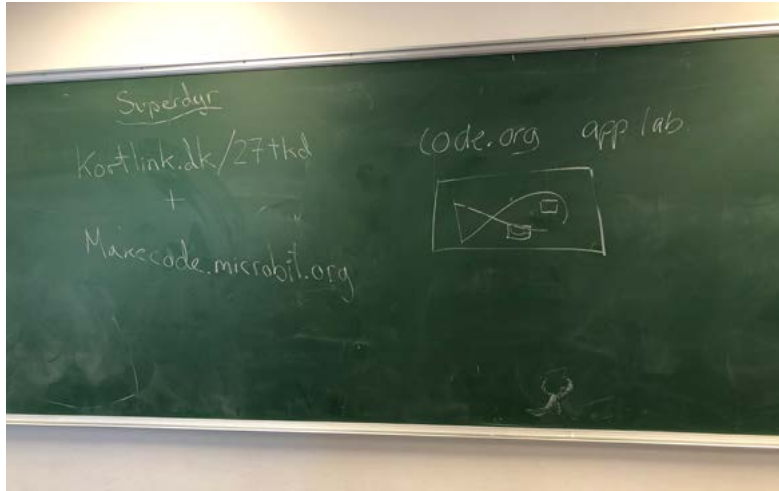 Superdyr
Kortlink.dk/27tkd
+
Makecode.microbit.org
code.org app lab